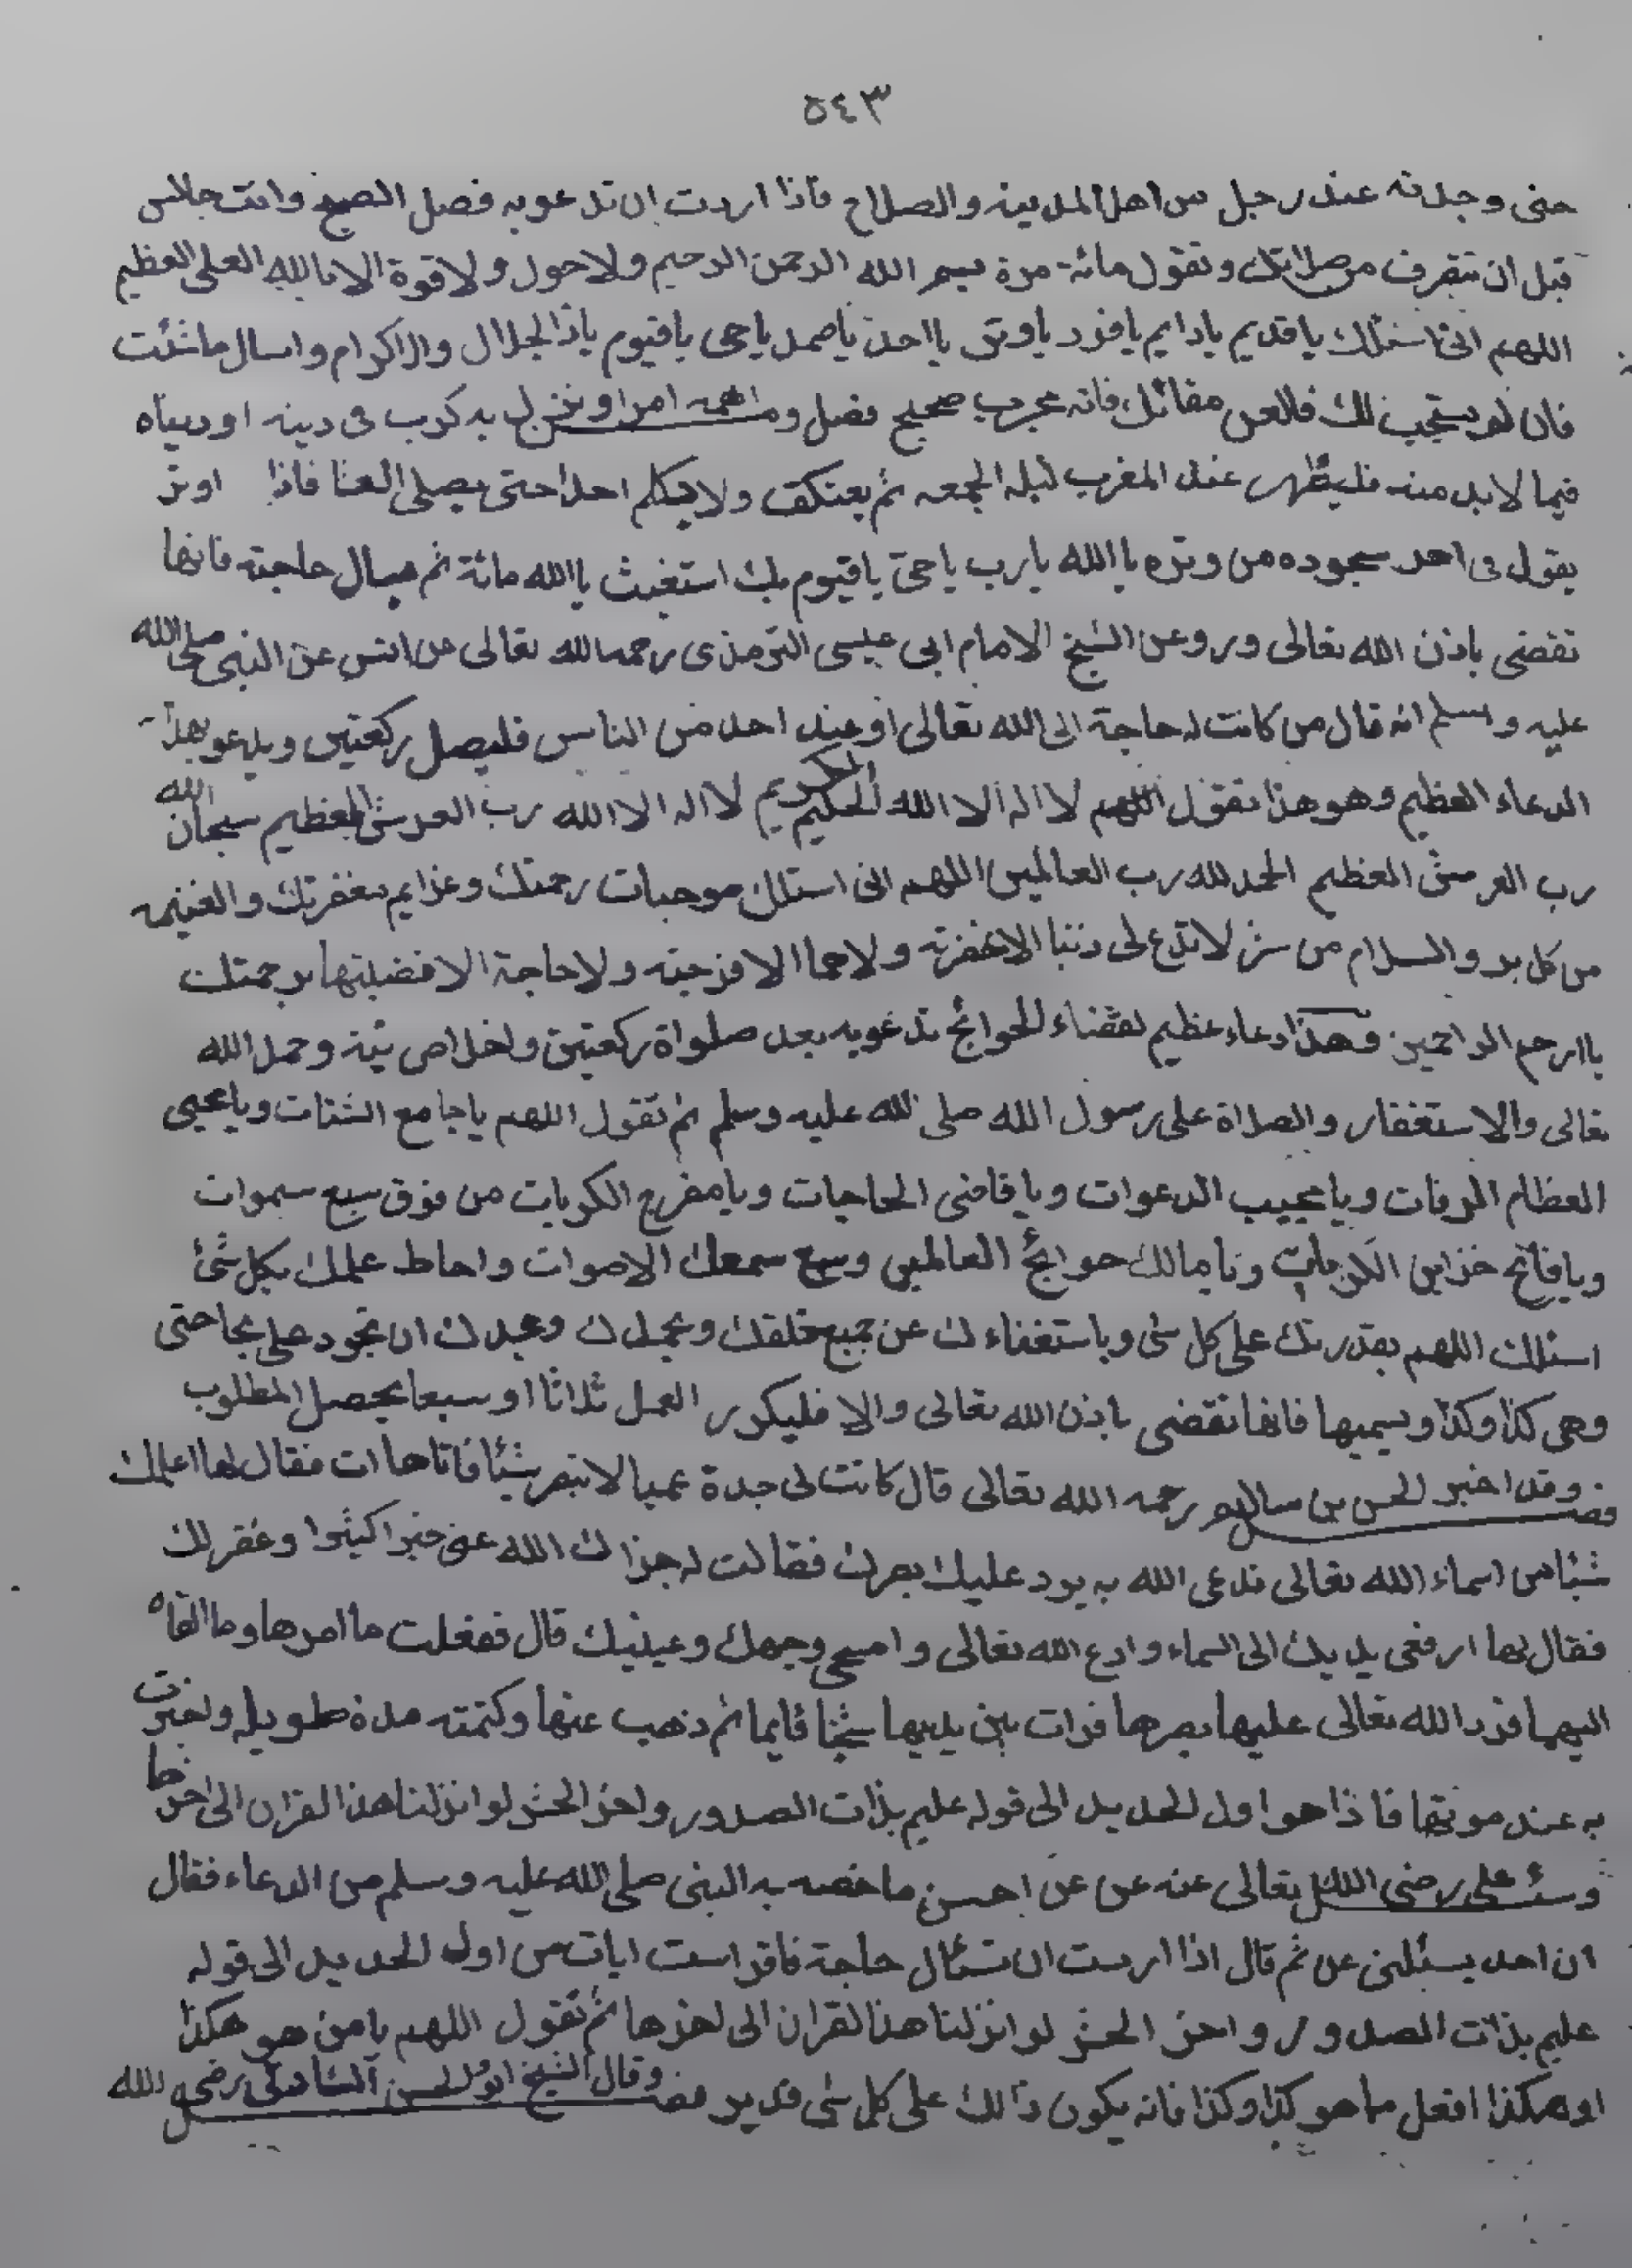 ٥٤٣
حتى وجدته عند رجل من اهل المدينة والصلاح فاذا اردت ان تدعو به فصل الصبح وانت جالس
قبل ان تتفرف من صلاتك وتقول مائة مرة بسم الله الرحمن الرحيم ولا حول ولا قوة الا بالله العلى العظيم
اللهم انى اسئلك يا قديم يا دايم يا فرد يا وتر يا احد يا صمد يا حى يا قيوم ياذا الجلال والاكرام واسال ما شئت
فان لم يستجب لك فالعن مقاتل فانه مجرب صحيح فصل ومن اهمه امر او نزل به كرب فى دينه او دنياه
فيما لا بد منه فليطهر عند المغرب ليله الجمعه ثم يعتكف ولا يتكلم احدا حتى يصلى العشا فاذا اوتر
يقول فى احد سجوده من وتره يا الله يا رب يا حى يا قيوم بك استغيث يا الله مائة ثم يسال حاجته فانها
تقضى باذن الله تعالى وروى عن الشيخ الامام ابى عيسى الترمذى رحمه الله تعالى عن انس عن النبى صلى الله
عليه وسلم انه قال من كانت له حاجة الى الله تعالى او عند احد من الناس فليصل ركعتين ويدعو بهذا
الدعاء العظيم وهو هذا تقول اللهم لا اله الا الله الحكيم الكريم لا اله الا الله رب العرش العظيم سبحان الله
رب العرش العظيم الحمد لله رب العالمين اللهم انى اسئلك موجبات رحمتك وعزايم مغفرتك والغنيمه
من كل بر والسلام من شر لا تدع لى ذنبا الا غفرته ولا هما الا فرجته ولا حاجة الا قضيتها برحمتك
يا ارحم الراحمين وهذا دعاء عظيم لقضاء الحوائج تدعو به بعد صلواة ركعتين واخلاص نية وحمد الله
تعالى والاستغفار والصلاة على رسول الله صلى الله عليه وسلم ثم تقول اللهم يا جامع الشتات ويا محيى
العظام الرفات ويا مجيب الدعوات ويا قاضى الحاجات ويا مفرج الكربات من فوق سبع سموات
ويا فاتح خزاين الكرمات ويا مالك حوائج العالمين وسع سمعك الاصوات واحاط علمك بكل شئ
اسئلك اللهم بقدرتك على كل شى وباستغناءك عن جميع خلقك وبحمدك ومجدك ان تجود على بحاجتى
وهى كذا وكذا ويسميها فانها تقضى باذن الله تعالى والا فليكرر العمل ثلاثا او سبعا يحصل المطلوب
فصل وقد اخبر الحسن بن سالم رحمه الله تعالى قال كانت لى جدة عميا لا تبصر شيئا فاتاها ات فقال لها اعلمك
شيئا من اسماء الله تعالى تدعى الله به يرد عليك بصرك فقالت له جزاك الله عنى خيرا كثيرا وغفر لك
فقال لها ارفعى يديك الى السماء وادع الله تعالى وامسحى وجهك وعينيك قال ففعلت ما امرها وما القاه
اليها فرد الله تعالى عليها بصرها فرات بين يديها شيخا قايما ثم ذهب عنها وكتمته مدة طويله واخبرت
به عند موتها فاذا هو اول الحديد الى قوله عليم بذات الصدور واخر الحشر لو انزلنا هذا القران الى اخرها
وسئل على رضى الله تعالى عنه عن عن احسن ما خصه به النبى صلى الله عليه وسلم من الدعاء فقال
ان احد يسئلنى عن ثم قال اذا اردت ان تسئال حاجة فاقرا ست ايات من اول الحديد الى قوله
عليم بذات الصدور واخر الحشر لو انزلنا هذا القران الى اخرها ثم تقول اللهم يا من هو هكذا
او هكذا افعل ما هو كذا وكذا فانه يكون ذالك على كل شى قدير فصل وقال الشيخ ابو الحسن الشاذلى رضى الله